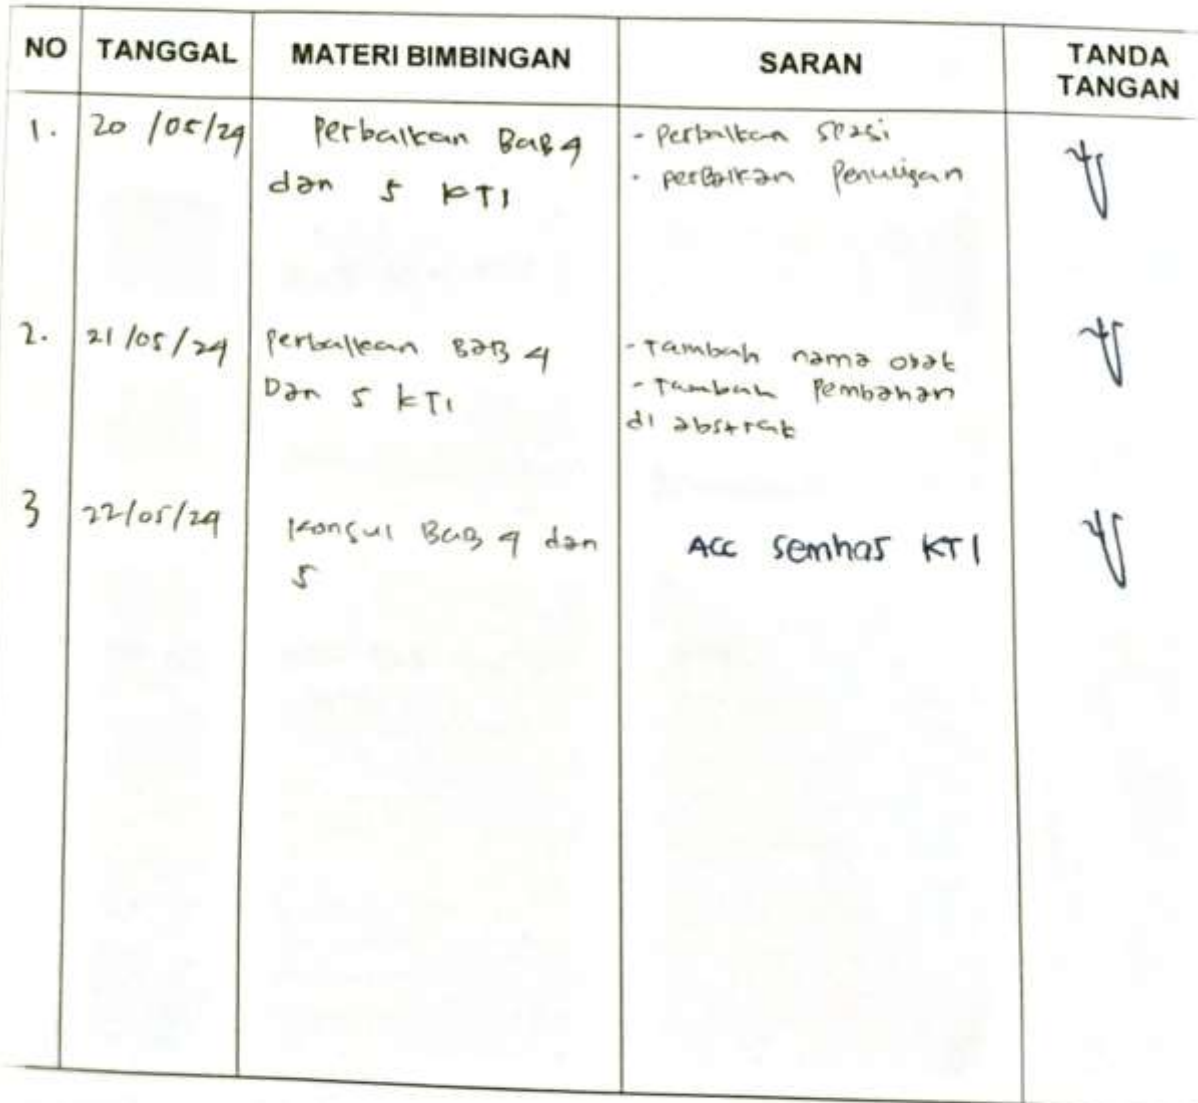 NO TANGGAL MATERI BIMBINGAN SARAN TANDA TANGAN
1. 20/05/24 Perbaikan BaB 4 - Perbaikan spasi
dan 5 KTI - perbaikan Penulisan
2. 21/05/24 Perbaikan BaB 4 - Tambah nama obat
Dan 5 KTI - Tambah Pembahan
di abstrak
3 22/05/24 Konsul BaB 4 dan ACC semhas KTI
5